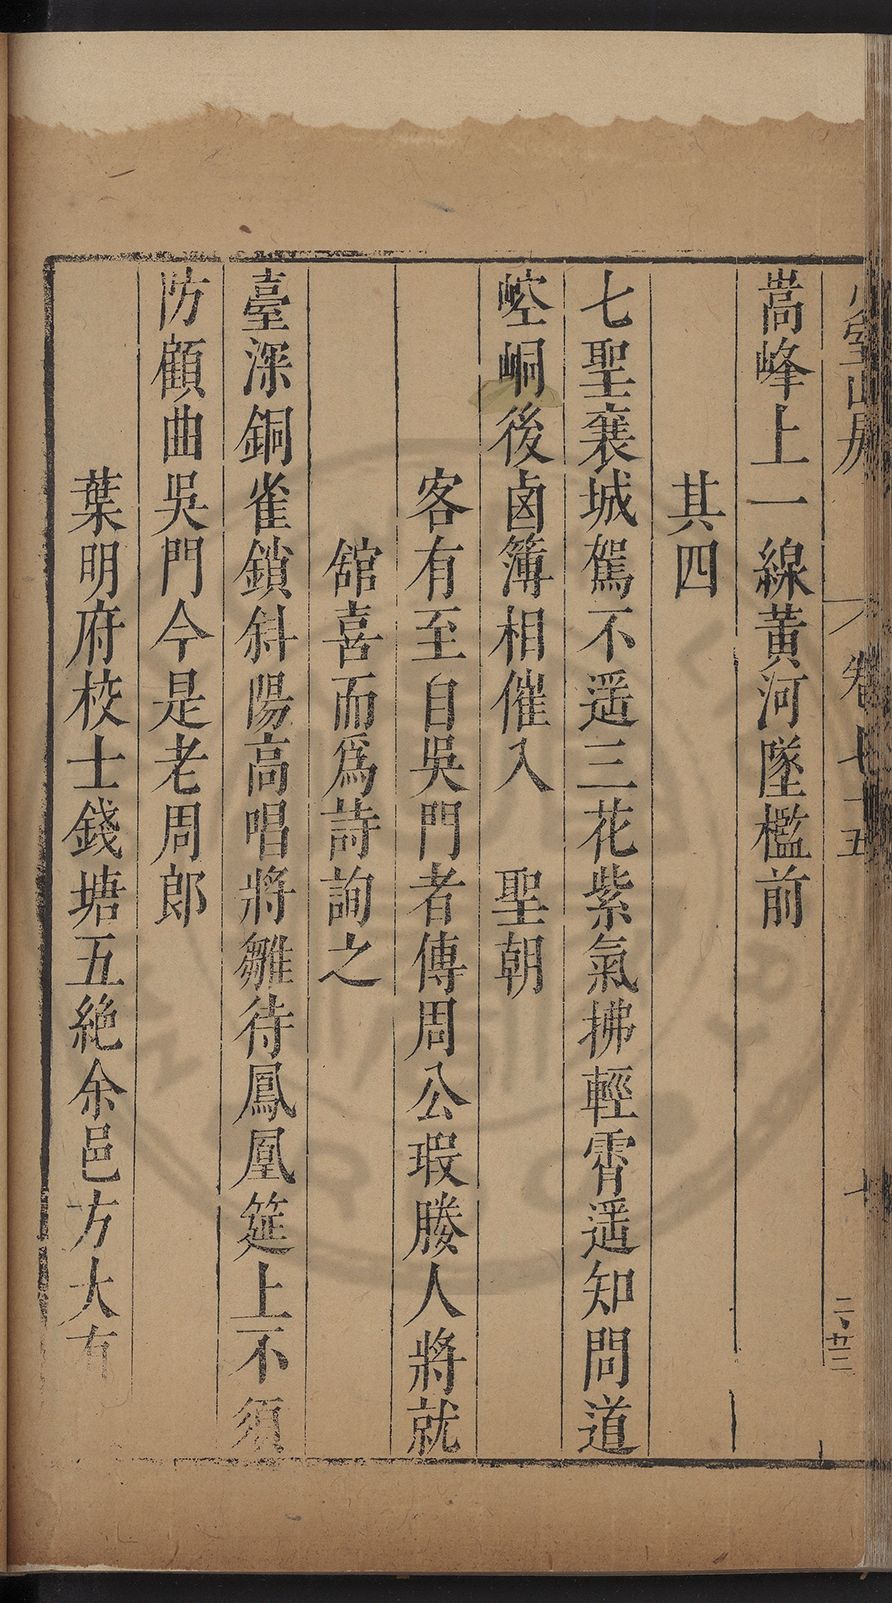 山房
卷七十五
嵩峰上一線黃河墜檻前
其四
七聖襄城駕不遥三花紫氣拂輕霄遥知問道
崆峒後鹵簿相催入　聖朝
客有至自吳門者傳周公瑕媵人將就
舘喜而爲詩詢之
臺深銅雀鎖斜陽高唱將雛待鳳凰筵上不須
防顧曲吳門今是老周郎
葉明府校士錢塘五絶余邑方大有